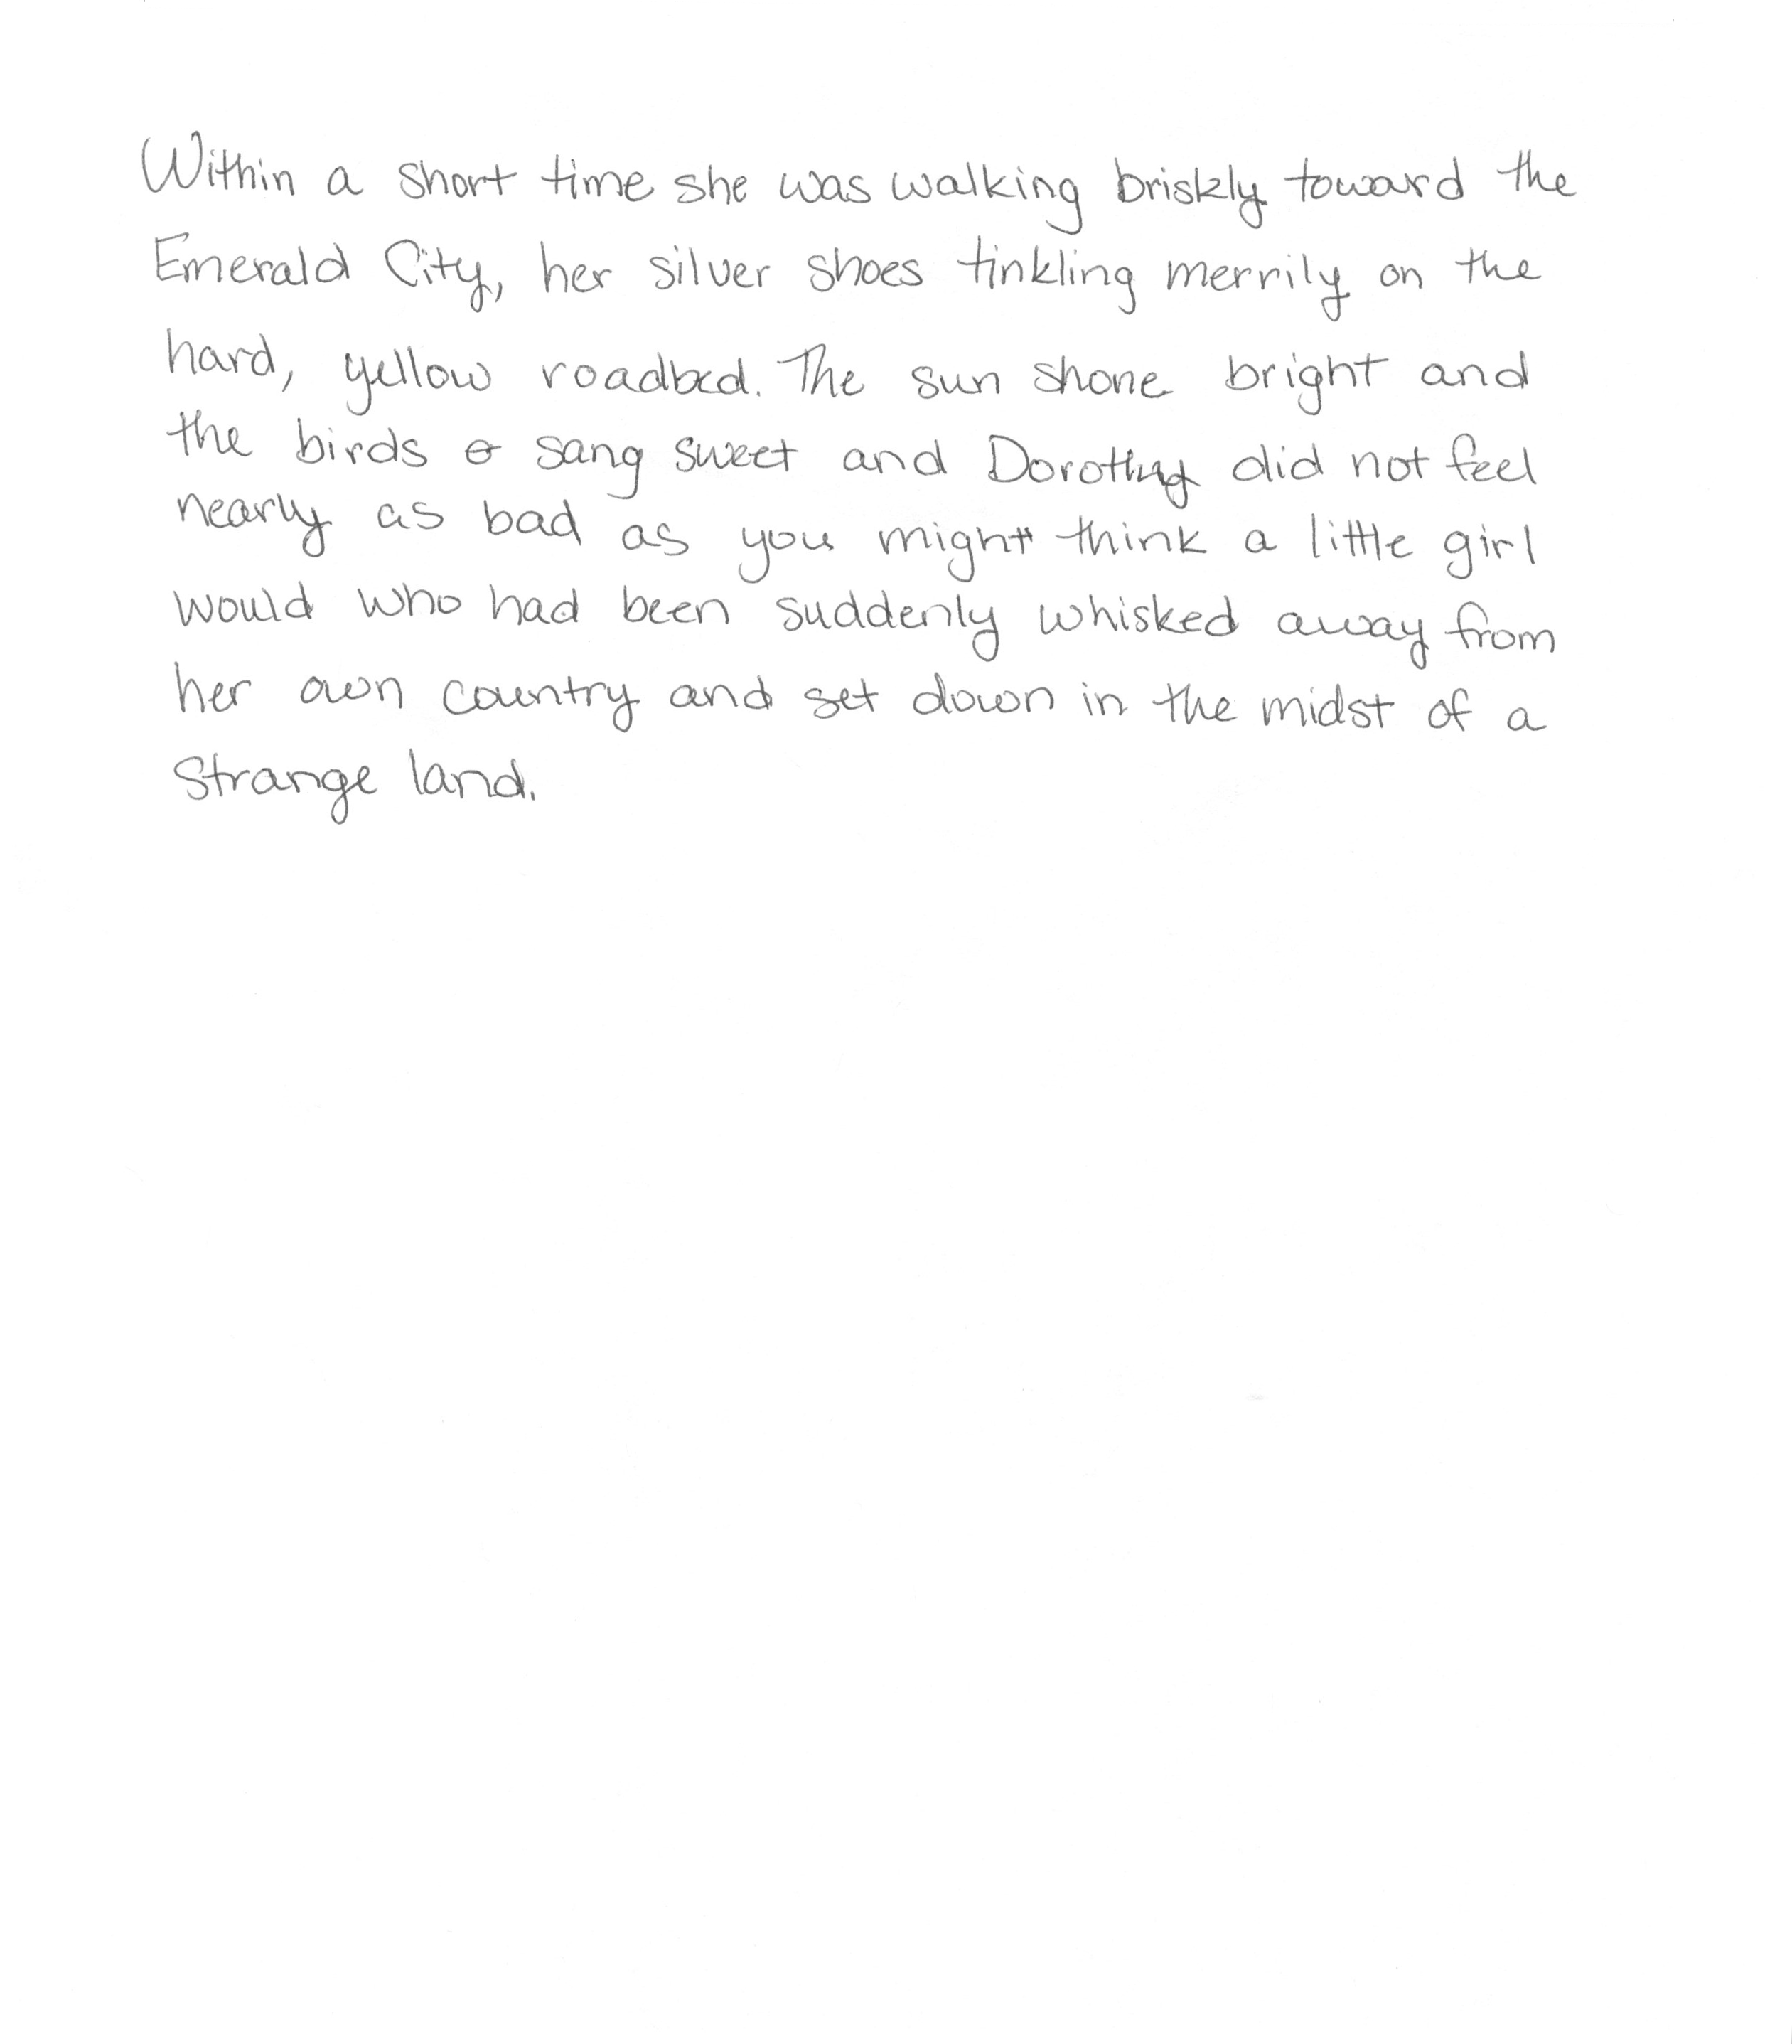 Within a short time she was walking briskly toward the
Emerald City, her silver shoes tinkling merrily on the
hard, yellow roadbed. The sun shone bright and
the birds sang sweet and Dorothy did not feel
nearly as bad as you might think a little girl
would who had been suddenly whisked away from
her own country and set down in the midst of a
strange land.